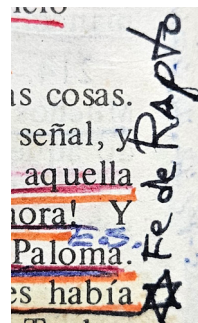 as cosas.
señal, y
aquella
hora! Y
E.S.
Paloma.
es había
Fe de Rapto